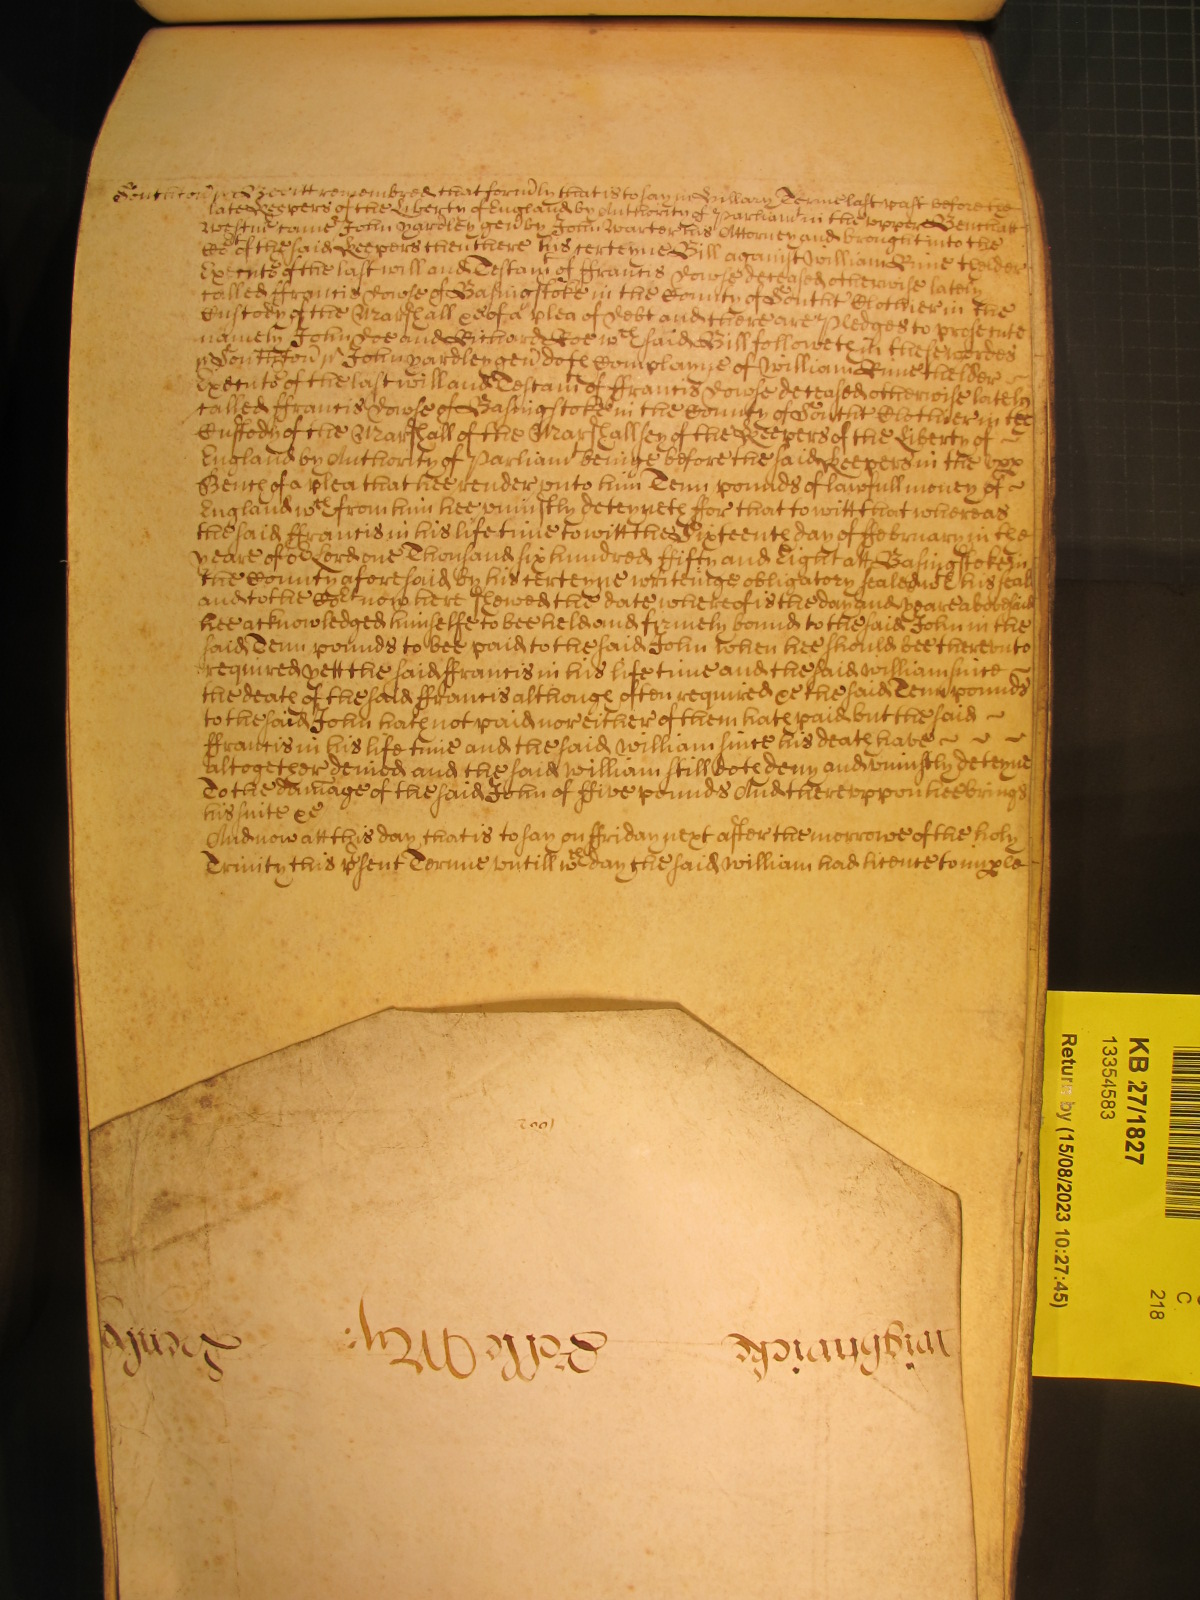 Southton ss Bee itt remembred that formly that is to say in Hillary Terme last past before the
late Keepers of the Liberty of England by Authority of Parliamt in the upper Bench att
Westmr came John yardley gen by John Warter his Attorney and brought into the
Co[r]t of the said Keepers then there his certeyne Bill against William Rime thelder
Executr of the last will and Testamt of ffrancis Dowse deceased otherwise lately
called ffrancis Dowse of Basingstoke in the County of Southt Clothier in the
Custody of the Marshall &c of a plea of Debt and there are Pledges to prosecute
namely John Doe and Richard Roe wch said Bill followeth in these wordes
ss Southton ss John yardley gen doth Complayne of William Rime thelder
Executr of the last will and Testamt of ffrancis Dowse deceased otherwise lately
called ffrancis Dowse of Basingstoke in the County of Southt Clothier in the
Custody of the Marshall of the Marshallsey of the Keepers of the Liberty of
England by Authority of Parliamt beinge before the said Keepers in the upp
Bench of a plea that hee render unto him Tenn pounds of lawfull money of
England wch from him hee uniustly deteyneth ffor that to witt that whereas
the said ffrancis in his life time to witt the Sixteenth day of ffebruary in the
yeare of or Lord one Thousand six hundred ffifty and Eight att Basingstoke in
the County aforesaid by his certeyne writinge obligatory sealed wth his seale
and to the Cort now here shewed the date whereof is the day and yeare abovesaid
hee acknowledged himselfe to bee held and firmely bound to the said John in the
said Tenn pounds to bee paid to the said John when hee should bee thereunto
required yett the said ffrancis in his life time and the said William since
the death of the said ffrancis although often required &c the said Tenn pounds
to the said John hath not paid nor either of them hath paid but the said
ffrancis in his life time and the said William since his death have
altogether denied and the said William still doth deny and uniustly deteyne
To the damage of the said John of ffive pounds And thereuppon hee brings
his suite &c
And now att this day that is to say on ffriday next after the morrowe of the holy
Trinity this psent Terme untill wch day the said William had licence to imple
1002
Wightwicke
Pasche
KB 27/1827
13354583
Return by (15/08/2023 10:27:45)
C
218